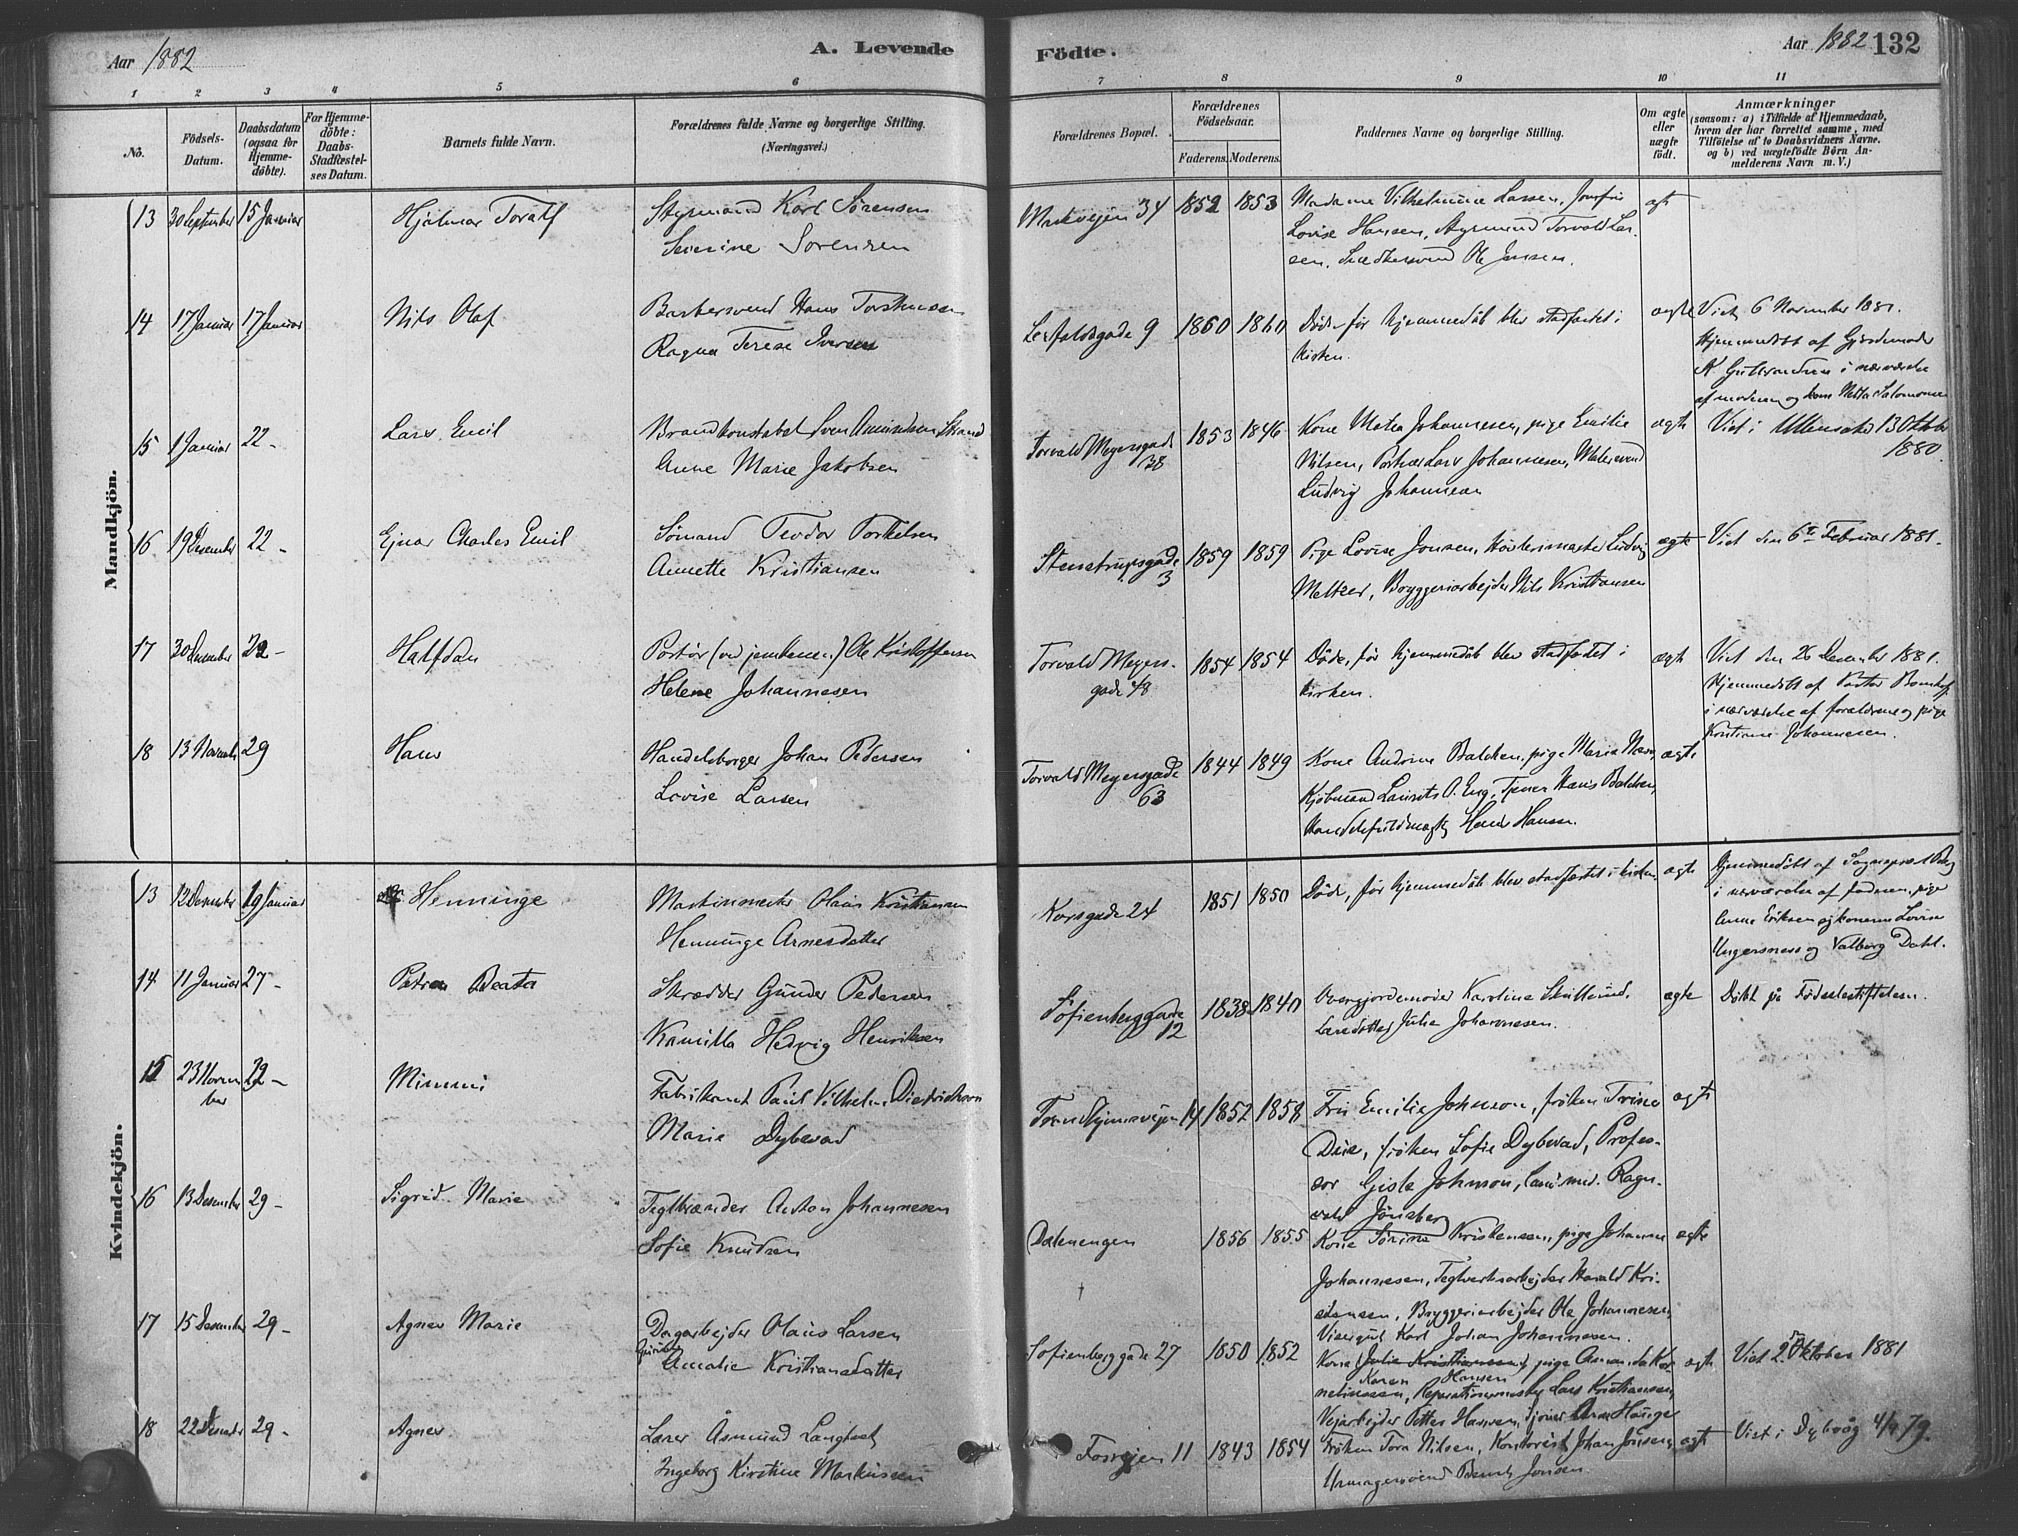 Aar 1882
A. Levende
Födte.
Aar 1882
132
1 2 3 4 5 6 7 8 9 10 11
No.
Födsels-
Datum.
Daabsdatum
(ogsaa for
Hjemme-
döbte).
For Hjemme-
döbte:
Daabs-
Stadfæstel-
ses Datum.
Barnets fulde Navn.
Forældrenes fulde Navne og borgerlige Stilling.
(Næringsvei.)
Forældrenes Bopæl.
Forældrenes
Födselsaar.
Faderens. Moderens.
Faddernes Navne og borgerlige Stilling.
Om ægte
eller
uægte
födt.
Anmærkninger
(saasom: a) i Tilfælde af Hjemmedaab,
hvem der har forrettet samme, med
Tilföielse af to Daabsvidners Navne.
og b) ved uægtefödte Börn An-
melderens Navn m. V.)
Mandkjön.
13 30 September 15 Januar
Hjalmar Toralf
Styrmand Karl Sørensen
Severine Sørensen
Markvejen 34
1852 1853
Madame Vilhelmine Larsen, Josefine
Lovise Hansen, Styrmand Torvald Lar-
sen, Snedkersvend Ole Jensen.
14 17 Januar 17 Januar
Nils Olaf
Barbersvend Hans
Ragna Terese Iversen
9
1860 1860
Døde, før hjemmedåb blev stadfæstet i
kirken.
ægte
Viet 6 November 1881.
Hjemmedøbt af Gjordemoder
K. i nærværelse
af moderen og Salomonsen
15 1 Januar 22 -
Lars Emil
Brandkonstabel Sven Amundsen Strand
Anne Marie Jakobsen
Torvald Meyersgade
38
1853 1846
Kone Matea Johannesen, pige Emilie
Nilsen, Portnær Lars Johannesen, Malersvend
Ludvig Johannesen
ægte
Viet i Ullensaker 13 Oktober
1880.
16 19 Desember 22 -
Ejnar Charles Emil
Sømand Teodor Torkelsen
Annette Kristiansen
Stenstrupsgade
3
1859 1859
Pige Lovise Jonsen, Ludvig
Meltzer, Bryggeriarbejder Nils Kristiansen
ægte
Viet den 6te Februar 1881.
17 30 Desember 22 -
Halfdan
Portør (ved jernbanen) Ole Kristoffersen
Helene Johannesen
Torvald Meyers-
gade 48
1854 1854
Døde, før hjemmedåb blev stadfæstet i
kirken.
ægte
Viet den 26 Desember 1881.
Hjemmedøbt af Pastor
i nærværelse af forældrene og pige
Kristiane Johannesen.
18 13 November 29
Hans
Handelsborger Johan Pedersen
Lovise Larsen
Torvald Meyersgade
63
1844 1849
Kone Andrine Balchen, pige Maria
Kjøbmand Laurits A. Eng, Hans Balchen,
Handelsfuldmægtig Hansen.
ægte
Kvindekjön.
13 12 Desember 19 Januar
Henninge
Maskinmester Olaus Kristiansen
Henninge Arnesdatter
Korsgade 24
1851 1850
Døde, før hjemmedåb blev stadfæstet i kirken.
ægte
Hjemmedøbt af Sogneprest
i nærværelse af faderen, pige
Anne Eriksen og konerne Lovise
og Valborg Dahl.
14 11 Januar 27 -
Petra Beata
Skrædder Gunder Pedersen
Kamilla Hedvig Henriksen
Sofienberggade
12
1838 1840
Overgjordemoder Karoline
Julie Johannesen.
ægte
Døbt på Fødselsstiftelsen.
15 23 Novem-
ber 29 -
Mimmi
Fabrikant Paul Vilhelm Diedrichson
Marie Dybevad
Trondhjemsvejen 14
1852 1858
Fru Emilie Johnson, frøken Trine
Due, frøken Sofie Dybevad, Profes-
sor Gisle Johnson, Cand. med. Ragn-
vald Jønsberg
ægte
16 13 Desember 29 -
Sigrid Marie
Teglbrænder Anton Johannesen
Sofie Knudsen
Dælenengen
1856 1855
Kone Sørine Kristensen, pige Johanne
Johannesen, Teglverksarbejder Harald Kri-
stensen, Bryggeriarbejder Ole Johannesen,
Visergut Karl Johan Johannesen.
ægte
17 15 Desember 29 -
Agnes Marie
Dagarbejder Olaus Larsen
Amalie Kristiansdatter
Sofienberggade 27
1850 1852
Kone Julie Kristiansen, pige Amanda Kor-
Karen Hansen
neliussen, Lars Kristiansen,
Vejarbejder Petter Hansen, Hauge
ægte
Viet 2 Oktober 1881
18 22 Desember 29 -
Agnes
Lærer Åsmund
Ingeborg Kirstine Markussen
Fossvejen 11
1843 1854
Frøken Tora Nilsen, Kontorist Johan Jonsen,
Urmagersvend Jonsen.
ægte
Viet i Dybvåg 4/9 79.